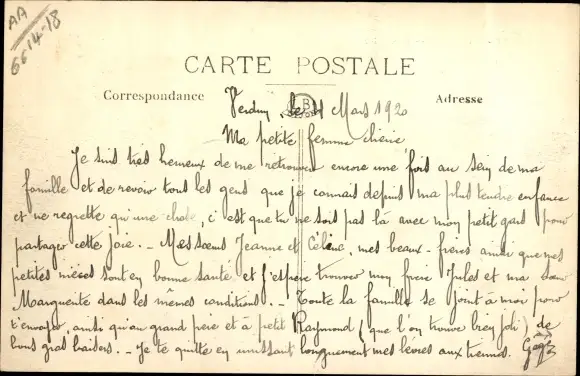 AA
6614-18
CARTE POSTALE
Correspondance
Adresse
Verdun, le 4 Mars 1920
Ma petite femme chérie,
Je suis très heureux de me retrouver encore une fois au sein de ma
famille et de revoir tous les gens que je connais depuis ma plus tendre enfance
et ne regrette qu'une chose, c'est que tu ne sois pas là avec mon petit gars pour
partager cette joie. - Mes sœurs Jeanne et Céline, mes beaux-frères ainsi que mes
petites nièces sont en bonne santé et j'espère trouver mon frère Jules et ma sœur
Marguerite dans les mêmes conditions. - Toute la famille se joint à moi pour
t'envoyer, ainsi qu'au grand père et à petit Raymond (que l'on trouve bien joli) de
bons gros baisers. - Je te quitte en unissant longuement mes lèvres aux tiennes.